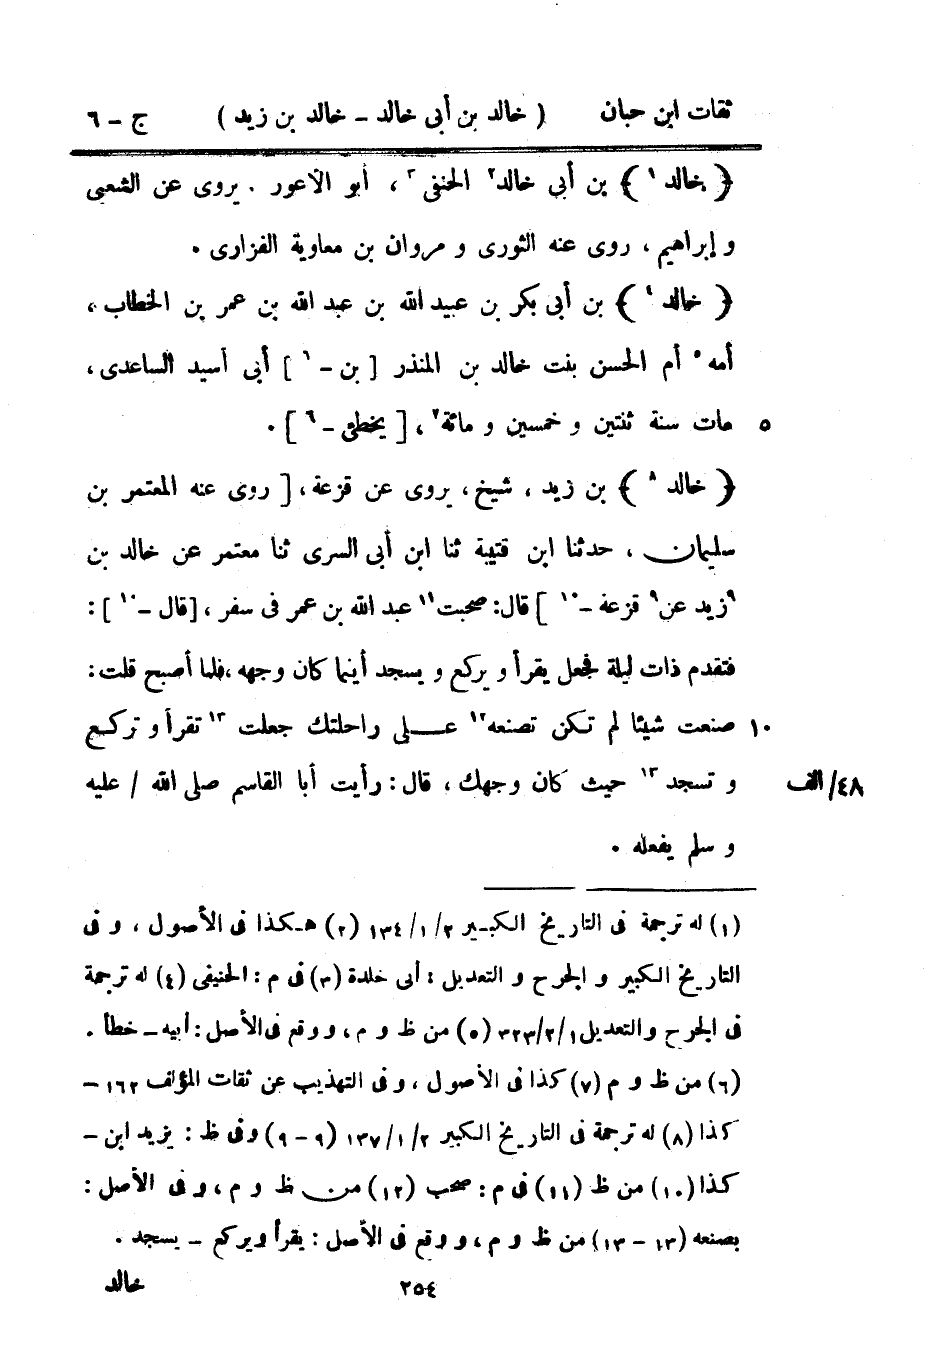 ثقات ابن حبان ( خالد بن أبى خالد - خالد بن زيد ) ج - ٦
﴿ خالد ١ ﴾ بن أبى خالد٢ الحنفى٣ ، أبو الأعور . يروى عن الشعبى
و إبراهيم ، روى عنه الثورى و مروان بن معاوية الفزارى .
﴿ خالد ٤ ﴾ بن أبى بكر بن عبيد الله بن عبد الله بن عمر بن الخطاب ،
أمه ٥ أم الحسن بنت خالد بن المنذر [ بن - ٦ ] أبى أسيد الساعدى ،
٥ مات سنة ثنتين و خمسين و مائة٧ ، [ يخطئ - ٦ ] .
﴿ خالد ٨ ﴾ بن زيد ، شيخ ، يروى عن قزعة ، [ روى عنه المعتمر بن
سليمان ، حدثنا ابن قتيبة ثنا ابن أبى السرى ثنا معتمر عن خالد بن
٩زيد عن٩ قزعة - ١٠ ] قال : صحبت١١ عبد الله بن عمر فى سفر ، [قال - ١٠ ] :
فتقدم ذات ليلة فجعل يقرأ و يركع و يسجد أينما كان وجهه ، فلما أصبح قلت :
١٠ صنعت شيئا لم تكن تصنعه١٢ على راحلتك جعلت ١٣ تقرأ و تركع
٤٨/ الف و تسجد ١٣ حيث كان وجهك ، قال : رأيت أبا القاسم صلى الله / عليه
و سلم يفعله .
(١) له ترجمة فى التاريخ الكبير ٢/١/١٣٤ (٢) هكذا فى الأصول ، و فى
التاريخ الكبير و الجرح و التعديل : أبى خلدة (٣) فى م : الحنيفى (٤) له ترجمة
فى الجرح والتعديل ١/٢/٣٢٣ (٥) من ظ و م ، و وقع فى الأصل : أبيه - خطأ .
(٦) من ظ و م (٧) كذا فى الأصول ، و فى التهذيب عن ثقات المؤلف ١٦٢ -
كذا (٨) له ترجمة فى التاريخ الكبير ٢/١/١٣٧ (٩ - ٩) وفى ظ : يزيد ابن -
كذا (١٠) من ظ (١١) فى م : صحب (١٢) من ظ و م ، و فى الأصل :
بصنعه (١٣ - ١٣) من ظ و م ، و وقع فى الأصل : يقرأ ويركع - يسجد .
٢٥٤ خالد